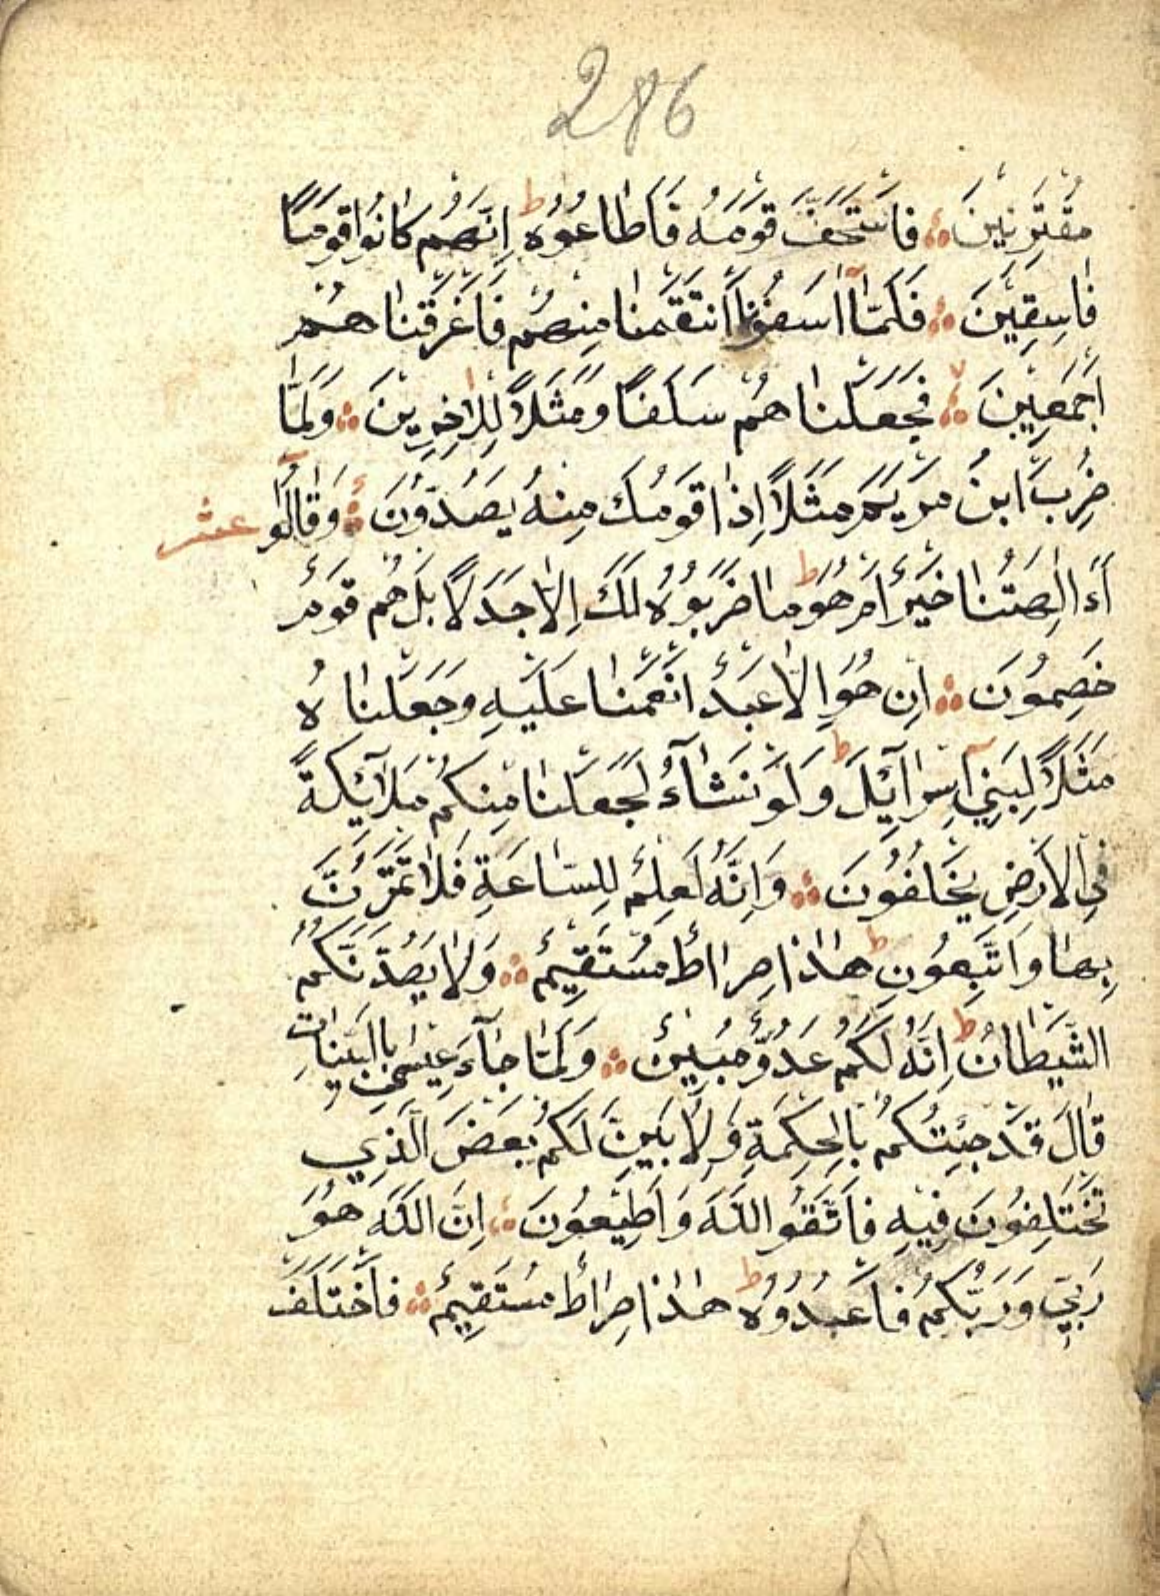 286
مُقْتَرِنِينَ ۞ فَاسْتَخَفَّ قَوْمَهُ فَاَطَاعُوهُ ط اِنَّهُمْ كَانُوا قَوْمًا
فَاسِقِينَ ۞ فَلَمَّا اٰسَفُونَا انْتَقَمْنَا مِنْهُمْ فَاَغْرَقْنَا هُمْ
اَجْمَعِينَ ۞ فَجَعَلْنَا هُمْ سَلَفًا وَمَثَلًا لِلْاٰخِرِينَ ۞ وَلَمَّا
ضُرِبَ ابْنُ مَرْيَمَ مَثَلًا اِذَا قَوْمُكَ مِنْهُ يَصُدُّونَ ۞ وَقَالُوا عشر
ءَاَالِهَتُنَا خَيْرٌ اَمْ هُوَ ط مَا ضَرَبُوهُ لَكَ اِلَّا جَدَلًا بَلْ هُمْ قَوْمٌ
خَصِمُونَ ۞ اِنْ هُوَ اِلَّا عَبْدٌ اَنْعَمْنَا عَلَيْهِ وَجَعَلْنَا هُ
مَثَلًا لِبَنِي اِسْرَآئِيلَ ط وَلَوْ نَشَآءُ لَجَعَلْنَا مِنْكُمْ مَلَآئِكَةً
فِي الْاَرْضِ يَخْلُفُونَ ۞ وَاِنَّهُ لَعِلْمٌ لِلسَّاعَةِ فَلَا تَمْتَرُنَّ
بِهَا وَاتَّبِعُونِ ط هٰذَا صِرَاطٌ مُسْتَقِيمٌ ۞ وَلَا يَصُدَّنَّكُمُ
الشَّيْطَانُ ط اِنَّهُ لَكُمْ عَدُوٌّ مُبِينٌ ۞ وَلَمَّا جَآءَ عِيسٰى بِالْبَيِّنَاتِ
قَالَ قَدْ جِئْتُكُمْ بِالْحِكْمَةِ وَلِاُبَيِّنَ لَكُمْ بَعْضَ الَّذِي
تَخْتَلِفُونَ فِيهِ فَاتَّقُوا اللّٰهَ وَاَطِيعُونَ ۞ اِنَّ اللّٰهَ هُوَ
رَبِّي وَرَبُّكُمْ فَاعْبُدُوهُ ط هٰذَا صِرَاطٌ مُسْتَقِيمٌ ۞ فَاخْتَلَفَ